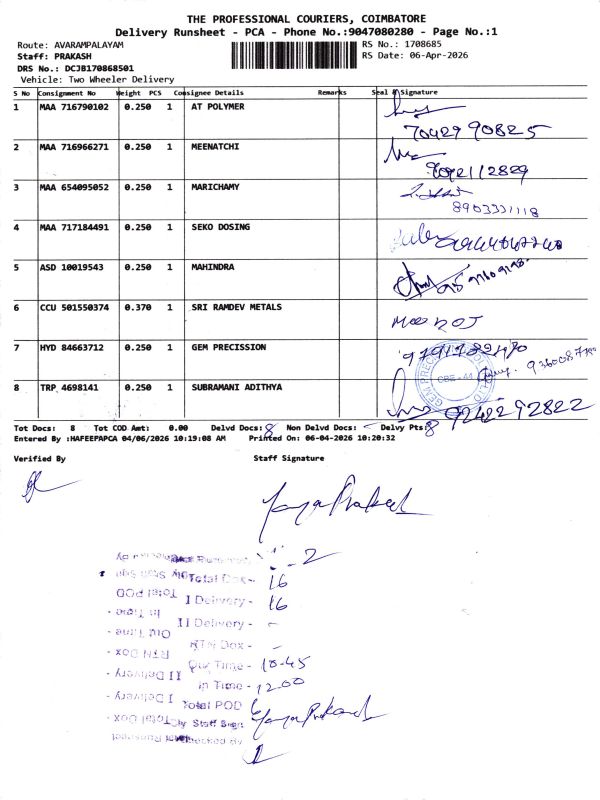 THE PROFESSIONAL COURIERS, COIMBATORE
Delivery Runsheet - PCA - Phone No.:9047080280 - Page No.:1
Route: AVARAMPALAYAM RS No.: 1708685
Staff: PRAKASH RS Date: 06-Apr-2026
DRS No.: DCJB170868501
Vehicle: Two Wheeler Delivery
S No Consignment No Weight PCS Consignee Details Remarks Seal & Signature
1 MAA 716790102 0.250 1 AT POLYMER
7042990825
2 MAA 716966271 0.250 1 MEENATCHI
3 MAA 654095052 0.250 1 MARICHAMY
8903331118
4 MAA 717184491 0.250 1 SEKO DOSING
5 ASD 10019543 0.250 1 MAHINDRA
6 CCU 501550374 0.370 1 SRI RAMDEV METALS
7 HYD 84663712 0.250 1 GEM PRECISSION
CBE - 44
8 TRP 4698141 0.250 1 SUBRAMANI ADITHYA
9242292822
Tot Docs: 8 Tot COD Amt: 0.00 Delvd Docs: 8 Non Delvd Docs: - Delvy Pts: 8
Entered By :HAFEEPAPCA 04/06/2026 10:19:08 AM Printed On: 06-04-2026 10:20:32
Verified By Staff Signature
Total Dox - 16
I Delivery - 16
II Delivery - -
RTN Dox - -
Out Time - 10-45
In Time - 12.00
Total POD
Dly Staff Sign
Checked By